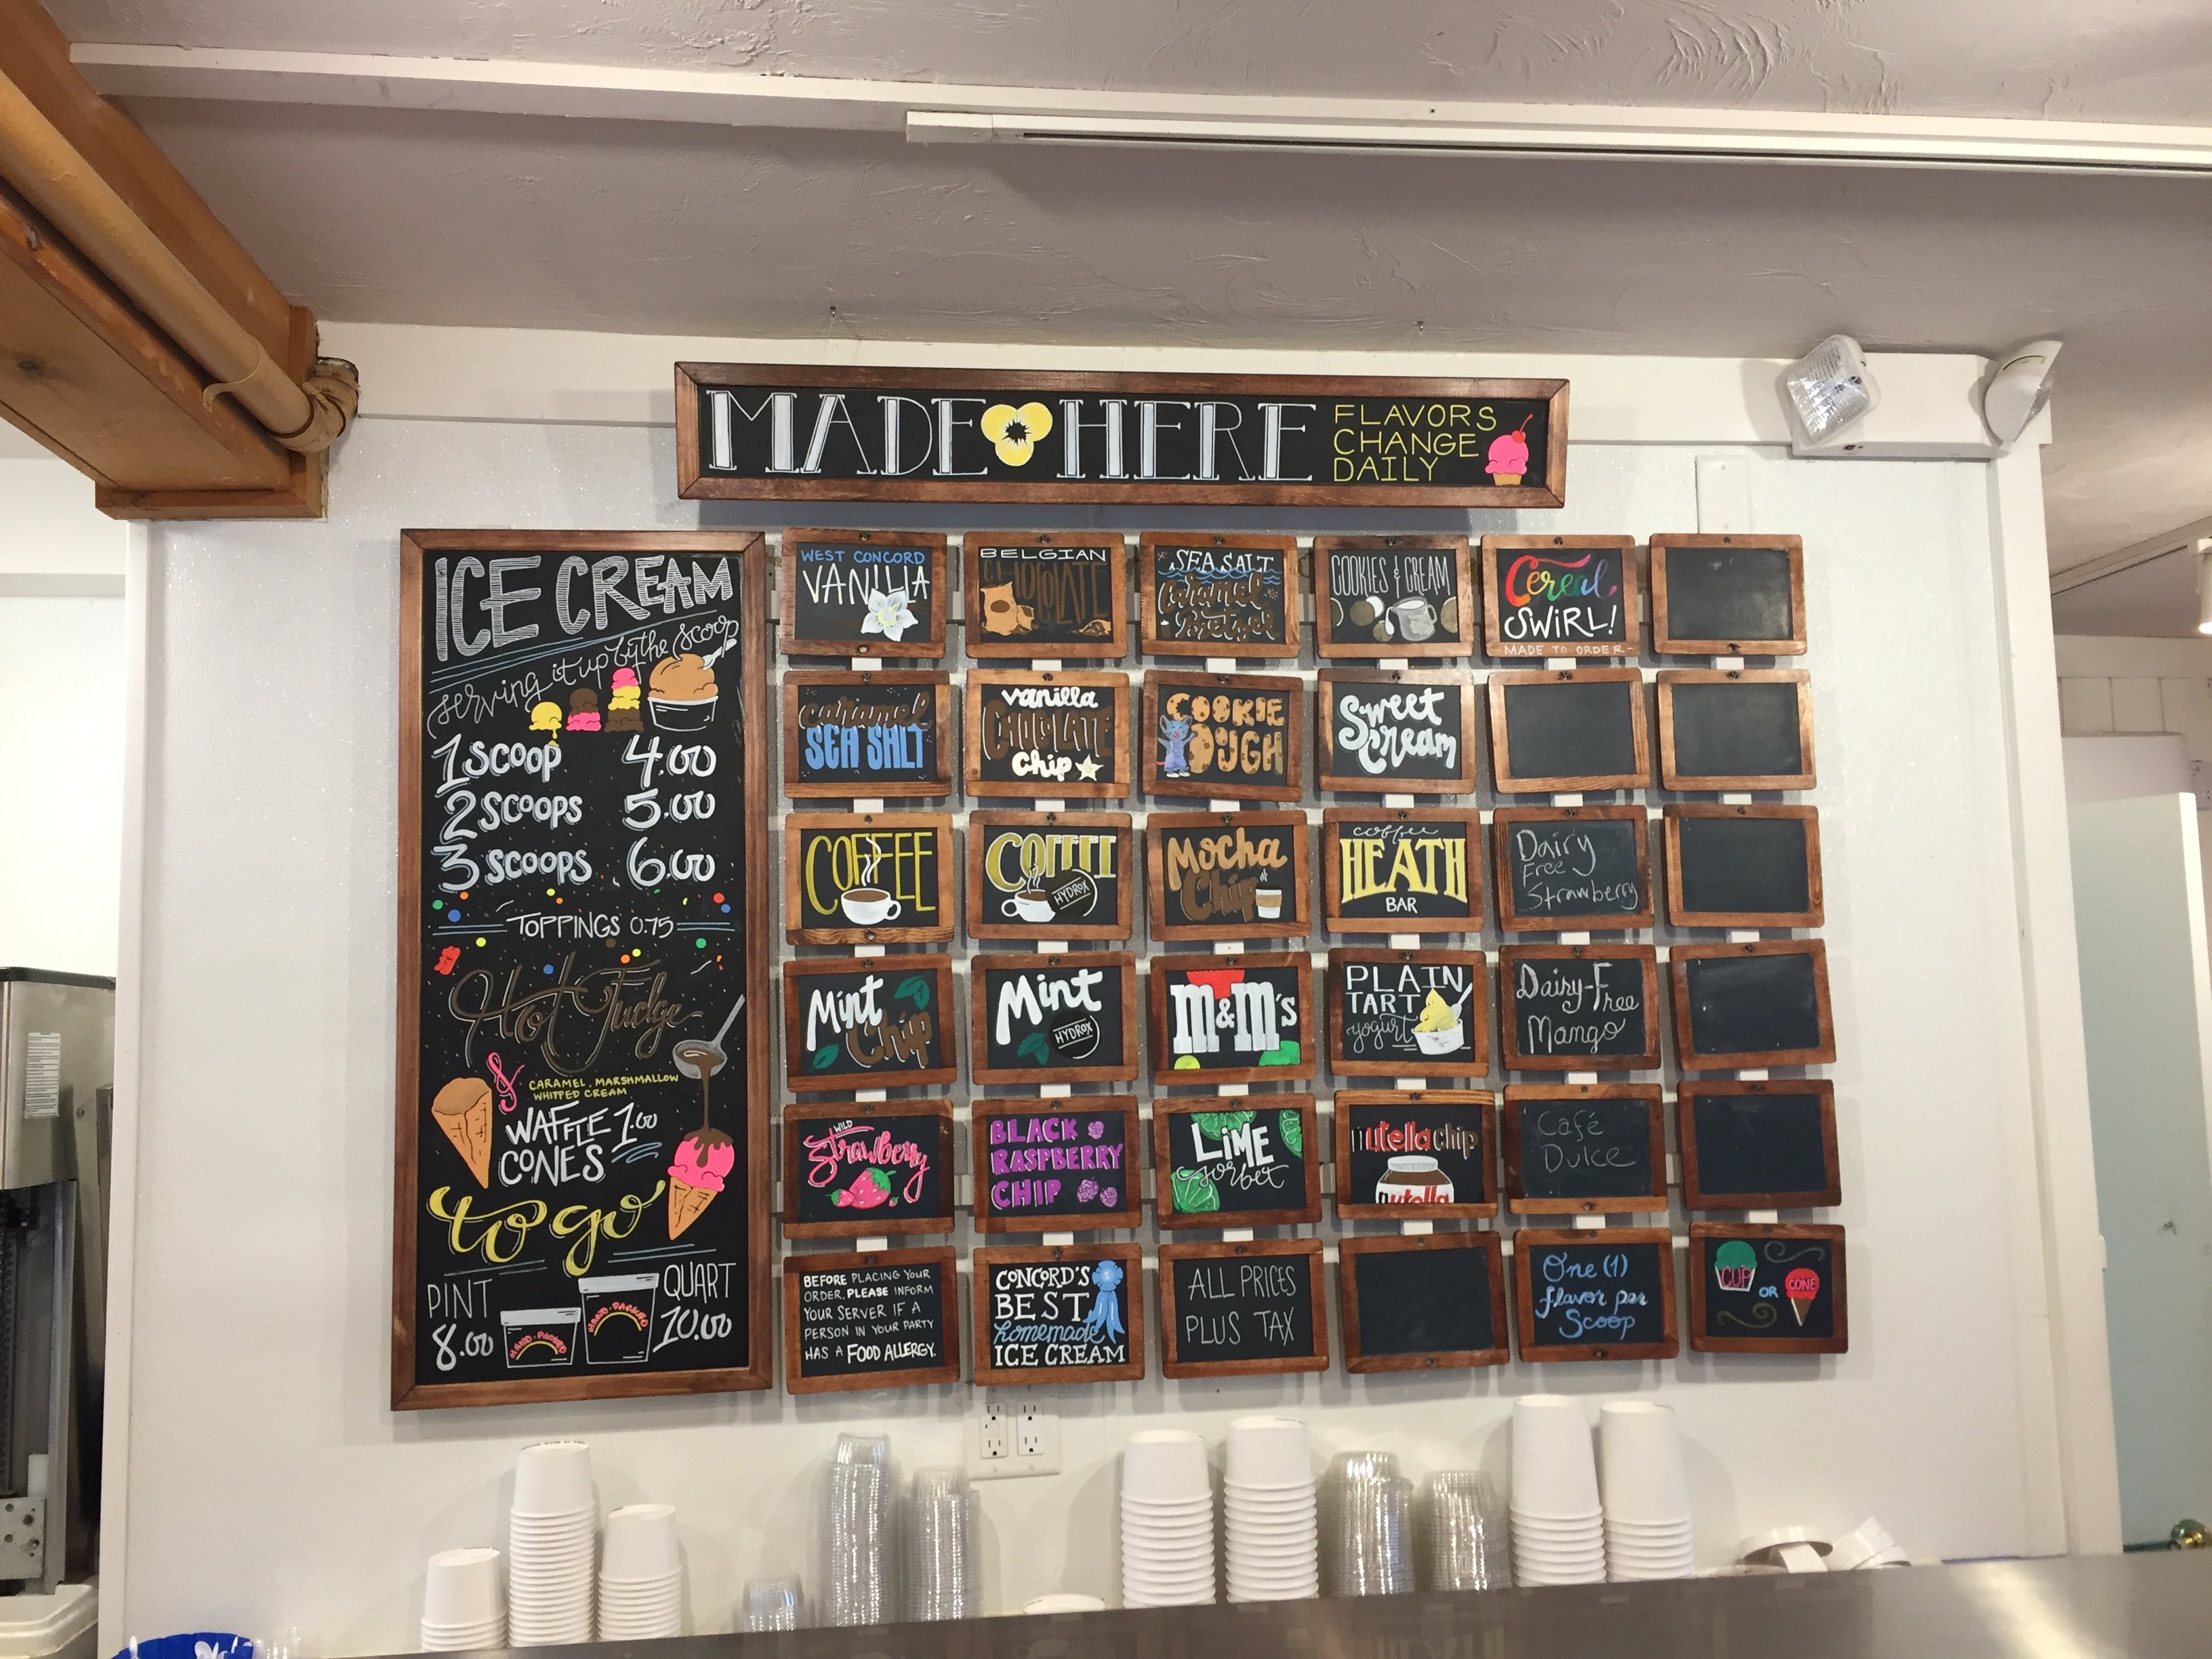 MADE HERE
FLAVORS
CHANGE
DAILY
ICE CREAM
serving it up by the scoop
1 SCOOP 4.00
2 SCOOPS 5.00
3 SCOOPS 6.00
TOPPINGS 0.75
Hot Fudge
& CARAMEL, MARSHMALLOW
WHIPPED CREAM
WAFFLE 1.00
CONES
to go
PINT
8.00
HAND-PACKED
QUART
10.00
HAND-PACKED
WEST CONCORD
VANILLA
BELGIAN
CHOCOLATE
SEA SALT
Caramel
Pretzel
COOKIES & CREAM
Cereal
SWIRL!
MADE TO ORDER-
caramel
SEA SALT
vanilla
CHOCOLATE
chip
COOKIE
DOUGH
Sweet
Cream
COFFEE
COFFEE
HYDROX
Mocha
Chip
coffee
HEATH
BAR
Dairy
Free
Strawberry
Mint
Chip
Mint
HYDROX
M&M's
PLAIN
TART
yogurt
Dairy-Free
Mango
WILD
Strawberry
BLACK
RASPBERRY
CHIP
LIME
sorbet
nutella chip
nutella
Café
Dulce
BEFORE PLACING YOUR
ORDER, PLEASE INFORM
YOUR SERVER IF A
PERSON IN YOUR PARTY
HAS A FOOD ALLERGY.
CONCORD'S
BEST
homemade
ICE CREAM
ALL PRICES
PLUS TAX
One (1)
flavor per
Scoop
CUP
OR
CONE